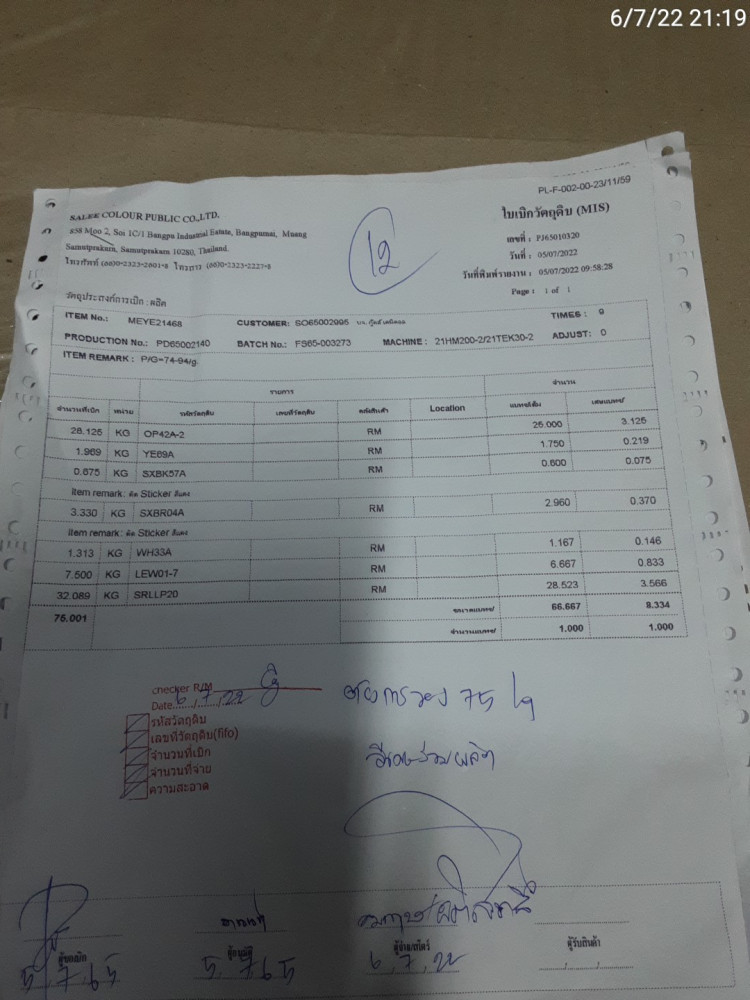 6/7/22 21:19
PL-F-002-00-23/11/59
SALEE COLOUR PUBLIC CO.,LTD.
ใบเบิกวัตถุดิบ (MIS)
858 Moo 2, Soi 1C/1 Bangpu Industrial Estate, Bangpumai, Muang
Samutprakarn, Samutprakarn 10280, Thailand.
โทรศัพท์ (66)0-2323-2601-8 โทรสาร (66)0-2323-2227-8
12
เลขที่ : PJ65010320
วันที่ : 05/07/2022
วันที่พิมพ์รายงาน : 05/07/2022 09:58:28
Page : 1 of 1
วัตถุประสงค์การเบิก : ผลิต
ITEM No.: MEYE21468 CUSTOMER: SO65002995 TIMES : 9
PRODUCTION No.: PD65002140 BATCH No.: FS65-003273 MACHINE : 21HM200-2/21TEK30-2 ADJUST: 0
ITEM REMARK : P/G=74-94/g.
รายการ จำนวน
จำนวนที่เบิก หน่วย รหัสวัตถุดิบ เลขที่วัตถุดิบ คลังสินค้า Location แบทช์เต็ม เศษแบทช์
28.125 KG OP42A-2 RM 25.000 3.125
1.969 KG YE69A RM 1.750 0.219
0.675 KG SXBK57A RM 0.600 0.075
Item remark: ติด Sticker สีแดง
3.330 KG SXBR04A RM 2.960 0.370
Item remark: ติด Sticker สีแดง
1.313 KG WH33A RM 1.167 0.146
7.500 KG LEW01-7 RM 6.667 0.833
32.089 KG SRLLP20 RM 28.523 3.566
75.001 ขนาดแบทช์ 66.667 8.334
จำนวนแบทช์ 1.000 1.000
checker R/M
Date 6/7/22
รหัสวัตถุดิบ
เลขที่วัตถุดิบ(fifo)
จำนวนที่เบิก
จำนวนที่จ่าย
ความสะอาด
75
ผู้ขอเบิก ผู้อนุมัติ ผู้จ่าย/สโตร์ ผู้รับสินค้า
5 / 7 / 65 5 / 7 / 65 6 / 7 / 22